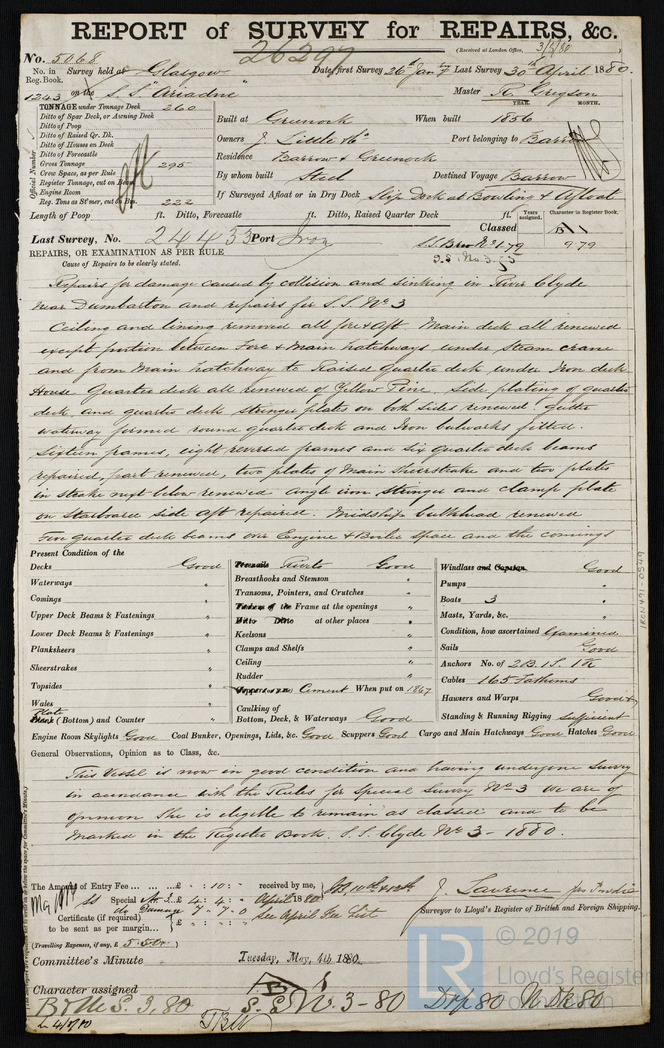 REPORT of SURVEY for REPAIRS, &c.
No. 5068
26297
(Received at London Office, 3/5/80)
No. in Reg. Book. Survey held at Glasgow Date, first Survey 26th Jany Last Survey 30th April 1880.
1243 on the S.S. "Ariadne" Master R. Gregson
YEAR. MONTH.
TONNAGE under Tonnage Deck 260
Ditto of Spar Deck, or Awning Deck
Ditto of Poop
Ditto of Raised Qr. Dk.
Ditto of Houses on Deck
Ditto of Forecastle
Gross Tonnage 295
Crew Space, as per Rule
Register Tonnage, cut on Beam
Engine Room
Reg. Tons as St'mer, cut on Beam 222
Official Number
Built at Greenock When built 1856
Owners J. Little & Co Port belonging to Barrow
Residence Barrow & Greenock
By whom built Steel Destined Voyage Barrow
If Surveyed Afloat or in Dry Dock Slip Dock at Bowling & Afloat
Length of Poop ft. Ditto, Forecastle ft. Ditto, Raised Quarter Deck ft.
Years assigned. Character in Register Book.
Classed
Last Survey, No. 24433 Port Iron
9.79
REPAIRS, OR EXAMINATION AS PER RULE
Cause of Repairs to be clearly stated.
Repairs for damage caused by collision and sinking in River Clyde
near Dumbarton and repairs for S.S. No 3
Ceiling and lining removed all fore & aft Main deck all renewed
except portion between Fore & Main hatchways under steam crane
and from Main hatchway to Raised Quarter deck under Iron deck
House Quarter deck all renewed of Yellow Pine. Side plating of quarter
deck and quarter deck stringer plates on both sides renewed. gutter
waterway formed round quarter deck and Iron bulwarks fitted.
Sixteen frames, eight reversed frames and Six quarter deck beams
repaired, part renewed, two plates of Main Sheerstrake and two plates
in strake next below renewed angle iron stringer and clamp plate
on Starboard side aft repaired. Midship bulkhead renewed
Two quarter deck beams over Engine & Boiler space and the comings
Present Condition of the
Decks Good
Waterways "
Comings "
Upper Deck Beams & Fastenings "
Lower Deck Beams & Fastenings "
Planksheers "
Sheerstrakes "
Topsides "
Wales "
Plate (Bottom) and Counter "
Treenails Rivets Good
Breasthooks and Stemson "
Transoms, Pointers, and Crutches "
Frame at the openings "
Ditto Ditto at other places "
Keelsons "
Clamps and Shelfs "
Ceiling "
Rudder "
Cement When put on 1867
Caulking of
Bottom, Deck, & Waterways Good
Windlass and Capstan Good
Pumps "
Boats 3 "
Masts, Yards, &c. "
Condition, how ascertained Examined
Sails Good
Anchors No. of 2B. 1S. 1K
Cables 165 Fathoms
Hawsers and Warps Good &
Standing & Running Rigging Sufficient
Engine Room Skylights Good Coal Bunker, Openings, Lids, &c. Good Scuppers Good Cargo and Main Hatchways Good Hatches Good
General Observations, Opinion as to Class, &c.
This Vessel is now in good condition and having undergone Survey
in accordance with the Rules for Special Survey No 3 We are of
opinion She is eligible to remain as classed and to be
Marked in the Register Book. S.S. Clyde No 3 - 1880.
The Amount of Entry Fee ... ... £ - : 10 : - received by me,
Special £ 4 : 4 : - April 1880
do Damage 7 - 7 - 0 See April Fee List
Certificate (if required)
to be sent as per margin
(Travelling Expenses, if any, £ )
J. Lawrence
Surveyor to Lloyd's Register of British and Foreign Shipping.
Committee's Minute Tuesday, May, 4th 1880
Character assigned
S.S. No. 3 - 80
IRON491-0549
LR
© 2019
Lloyd's Register
Foundation